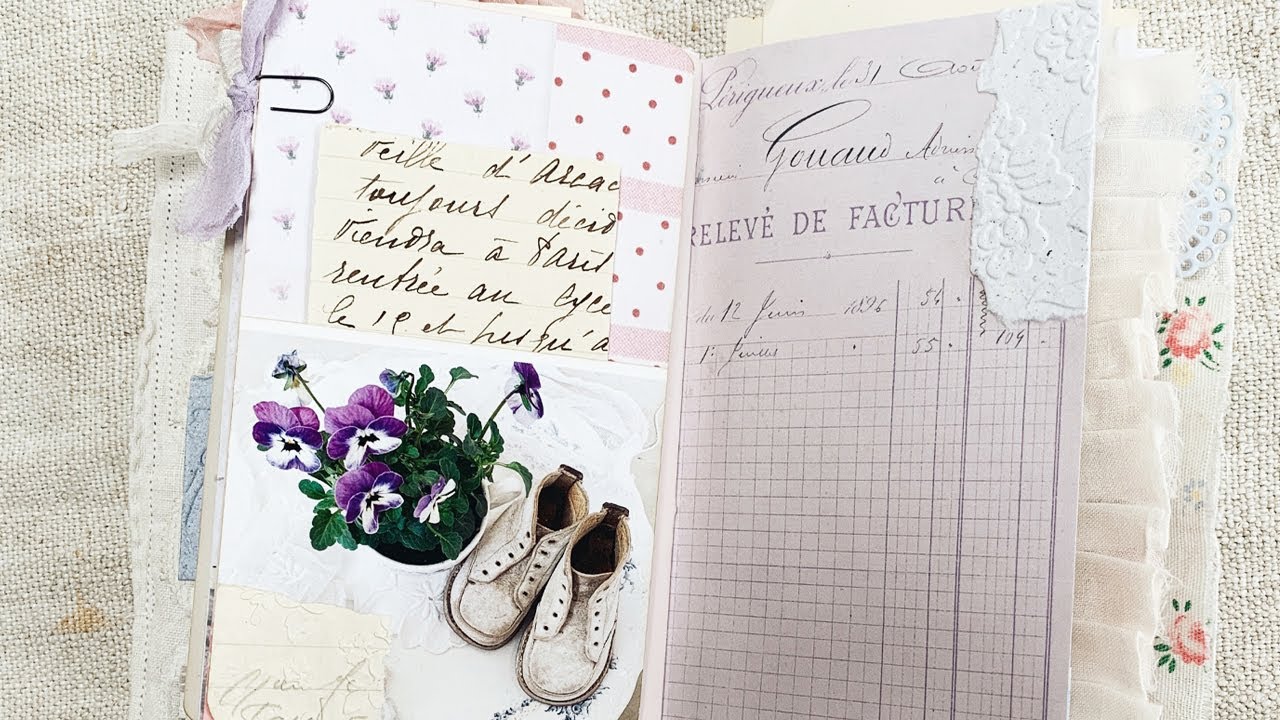 veille d'Arcac
toujours décid
viendra à Paris
rentrée au lyce
le 15 et jusqu'a
Périgueux, le 31 Aoû
Gouaud
à
RELEVÉ DE FACTUR
du 12 Juin 1896 54
55 109